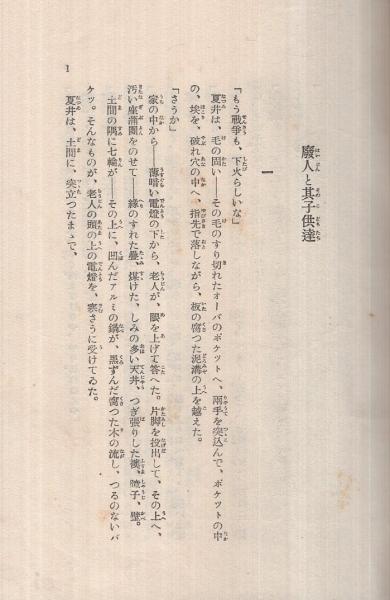 廢人と其子供達
一
「もう戰爭も、下火らしいな」
夏井は、毛の固い――その毛のすり切れたオーバのポケットへ、兩手を突込んで、ポケットの中
の、埃を、破れ穴の中へ、指先で落しながら、板の腐つた泥溝の上を越えた。
「さうか」
家の中から――薄暗い電燈の下から、老人が、眼を上げて答へた。片脚を投出して、その上へ、
汚い座蒲團をのせて――緣のすれた疊、煤けた、しみの多い天井、つぎ張りした襖、障子、壁。
土間の隅に七輪が――その上に、凹んだアルミの鍋が、黑ずんだ腐つた木の流し、つるのないバ
ケツ。そんなものが、老人の頭の上の電燈を、寒さうに受けてゐた。
夏井は、土間に、突立つたまゝで、
1